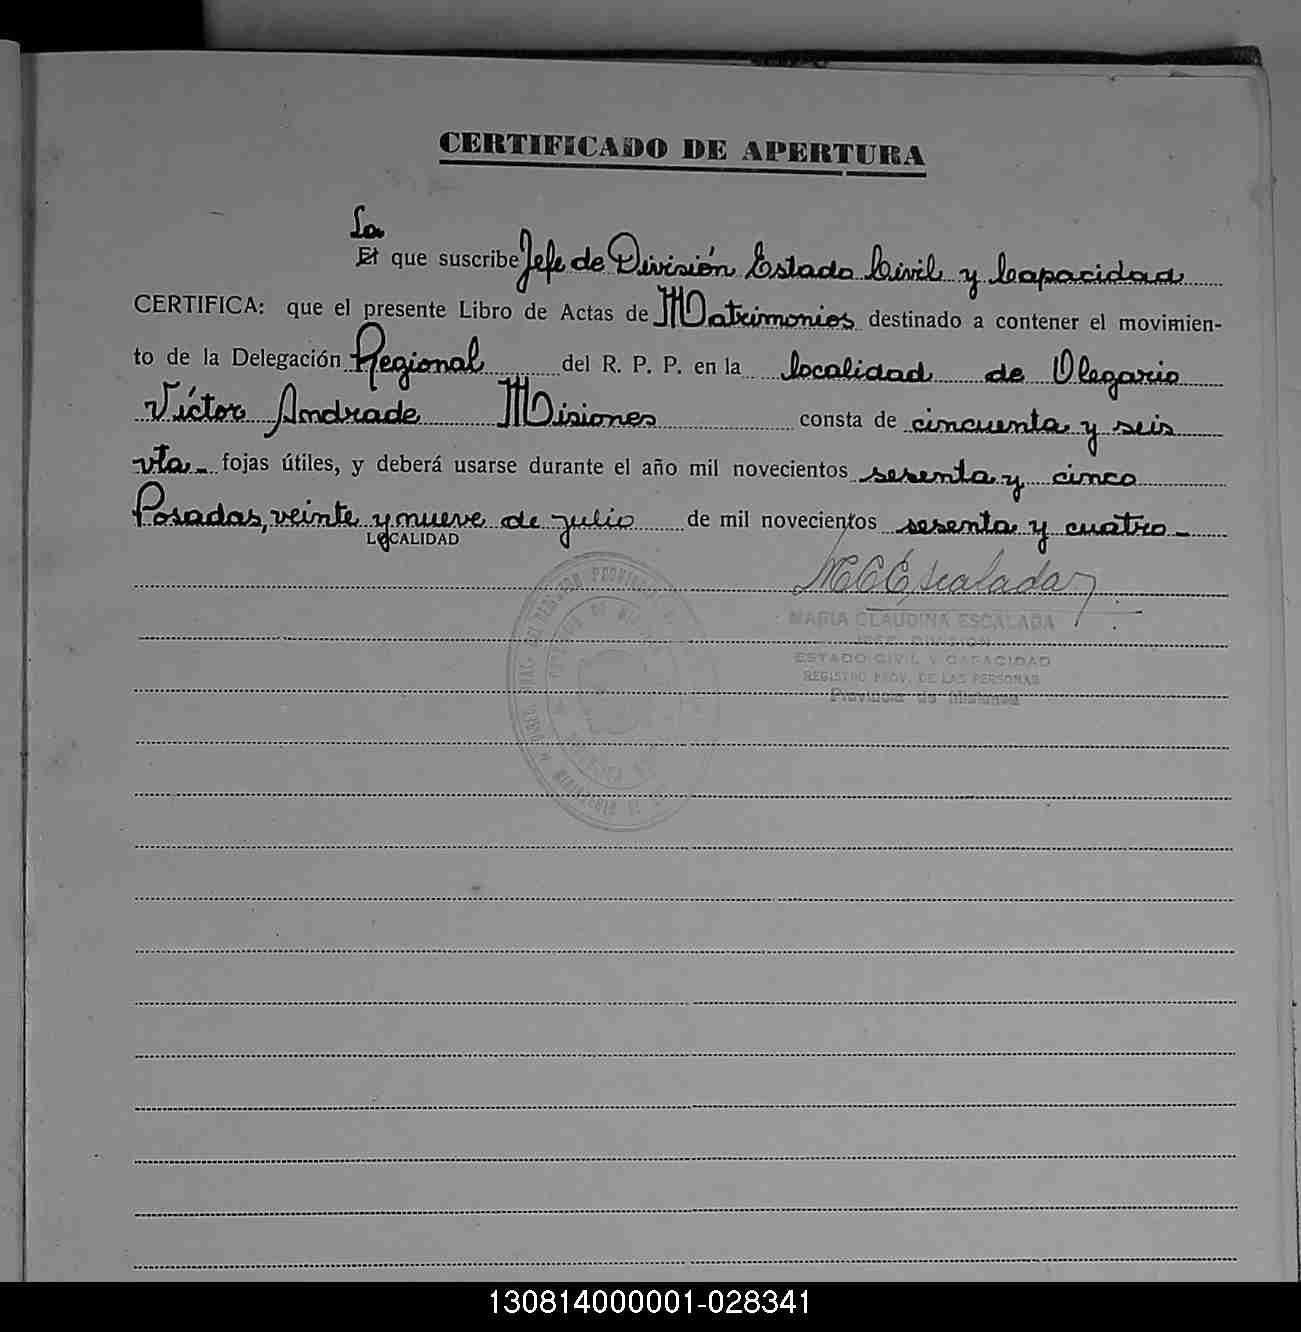 CERTIFICADO DE APERTURA
La
El que suscribe Jefe de División Estado Civil y Capacidad
CERTIFICA: que el presente Libro de Actas de Matrimonios destinado a contener el movimien-
to de la Delegación Regional del R. P. P. en la localidad de Olegario
Víctor Andrade Misiones consta de cincuenta y seis
vta- fojas útiles, y deberá usarse durante el año mil novecientos sesenta y cinco
Posadas, veinte y nueve de julio de mil novecientos sesenta y cuatro-
LOCALIDAD
MCEscalada
MARIA CLAUDINA ESCALADA
JEFE DIVISION
ESTADO CIVIL Y CAPACIDAD
REGISTRO PROV. DE LAS PERSONAS
Provincia de Misiones
130814000001-028341